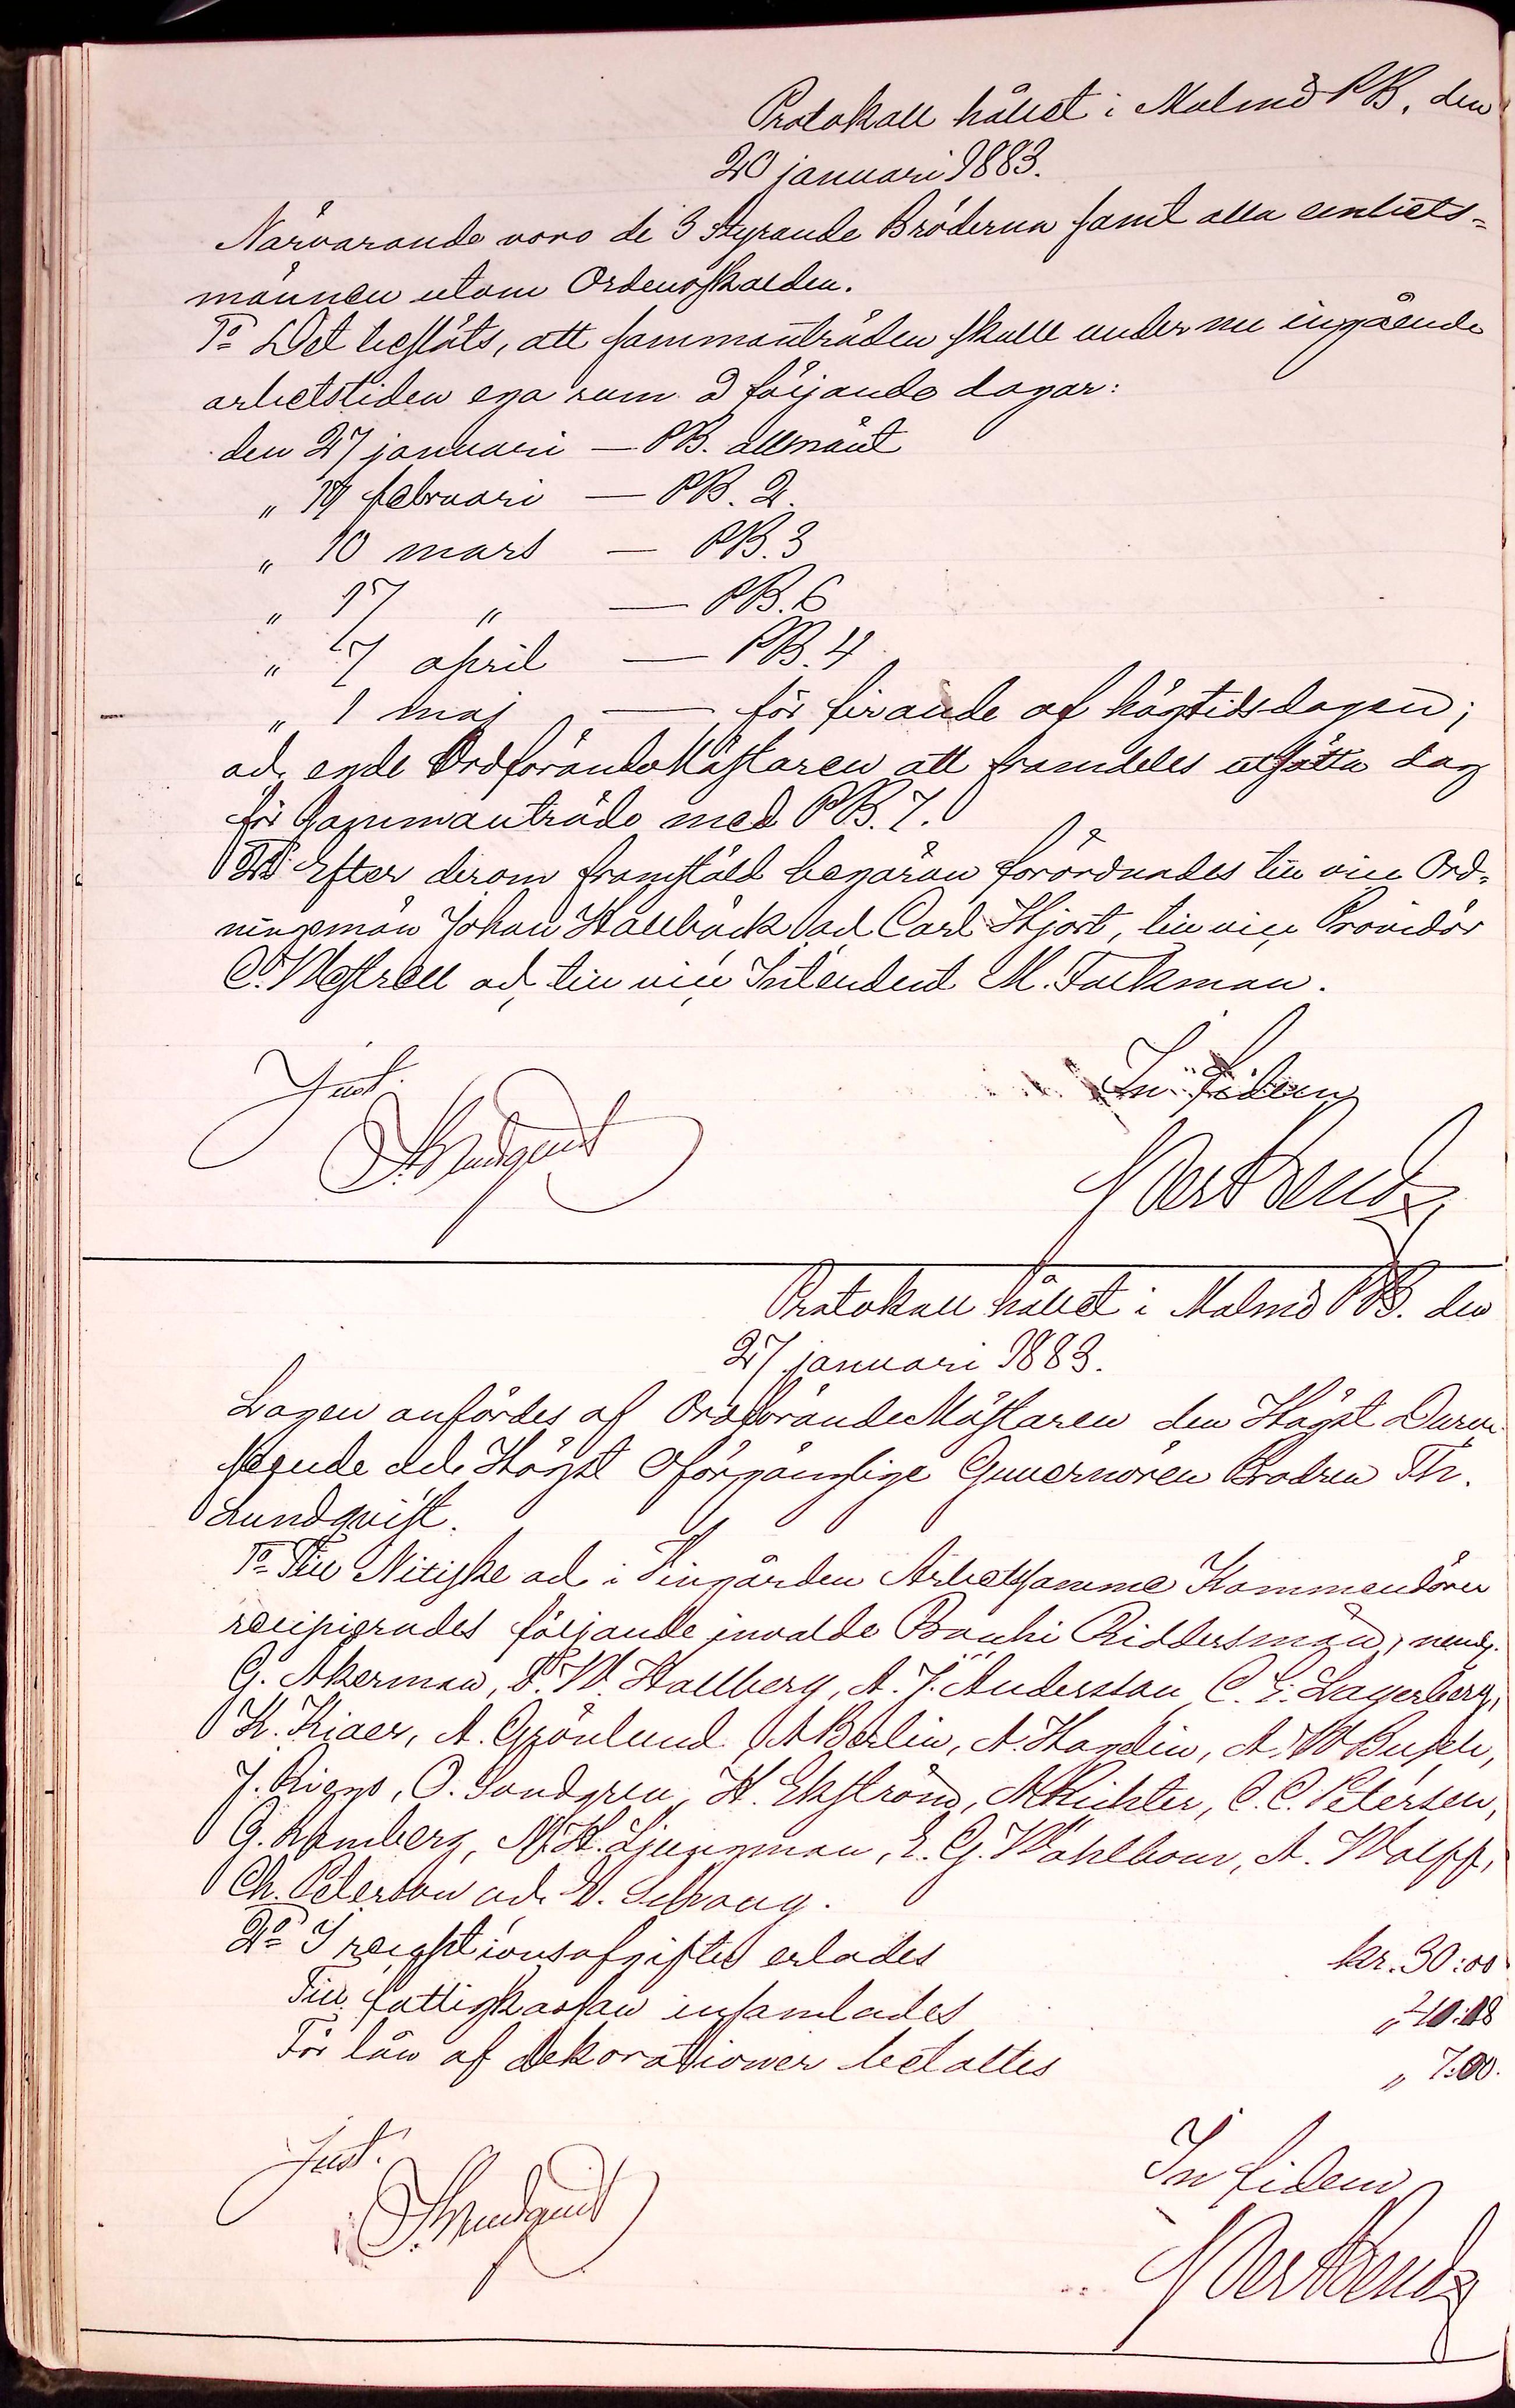 Protokoll hållet i Malmö PB. den
20 januari 1883.
Närvarande voro de 3 Styrande Bröderna samt alla embets-
männen utom Ordensskalden.
1º Det beslöts, att sammanträden skulle under nu ingående
arbetstiden ega rum å följande dagar:
den 27 januari — PB. allmänt
" februari — PB. 2.
" 10 mars — PB. 3
" 17 " — PB. 6
" 7 april — PB. 4
" 1 maj — för firande af högtidsdagen;
och egde Ordförande Mästaren att framdeles utsätta dag
för sammanträde med PB. 7.
2º Efter derom framstäld begäran förordnades till vice Ord-
ningsmän Johan Hallbäck och Carl Hjort, till vice Providör
C. Westrell och till vice Intendent M. Falkman.
Just.
Th Lundquist
In fidem
Protokoll hållet i Malmö PB. den
27 januari 1883.
Logen anfördes af Ordförande Mästaren den Högst
och Högst Oförgänglige Guvernören Brodren Th.
Lundqvist.
1º Till Nitiske och i Vingården Arbetsamme Kommendörer
recipierades följande invalde Bacchi Riddersmän, neml.
G. Åkerman, F. W. Hallberg, A. J. Andersson, C. E. Lagerberg,
H. Kiaer, A. Grönlund, A Berlin, A. Hardin, A. W Busch,
J. O. Sundgren, H. Ekström, A Richter, C. C. Petersen,
G. Ramberg, M. H. Ljungman, E. G. Wahlbom, A. Wolff,
Ch. Peterson och
2º I receptionsafgifter erlades kr. 30:00
Till fattigkassan insamlades " 
För lån af dekorationer betaltes " 7:00.
Just.
Th Lundquist
In fidem